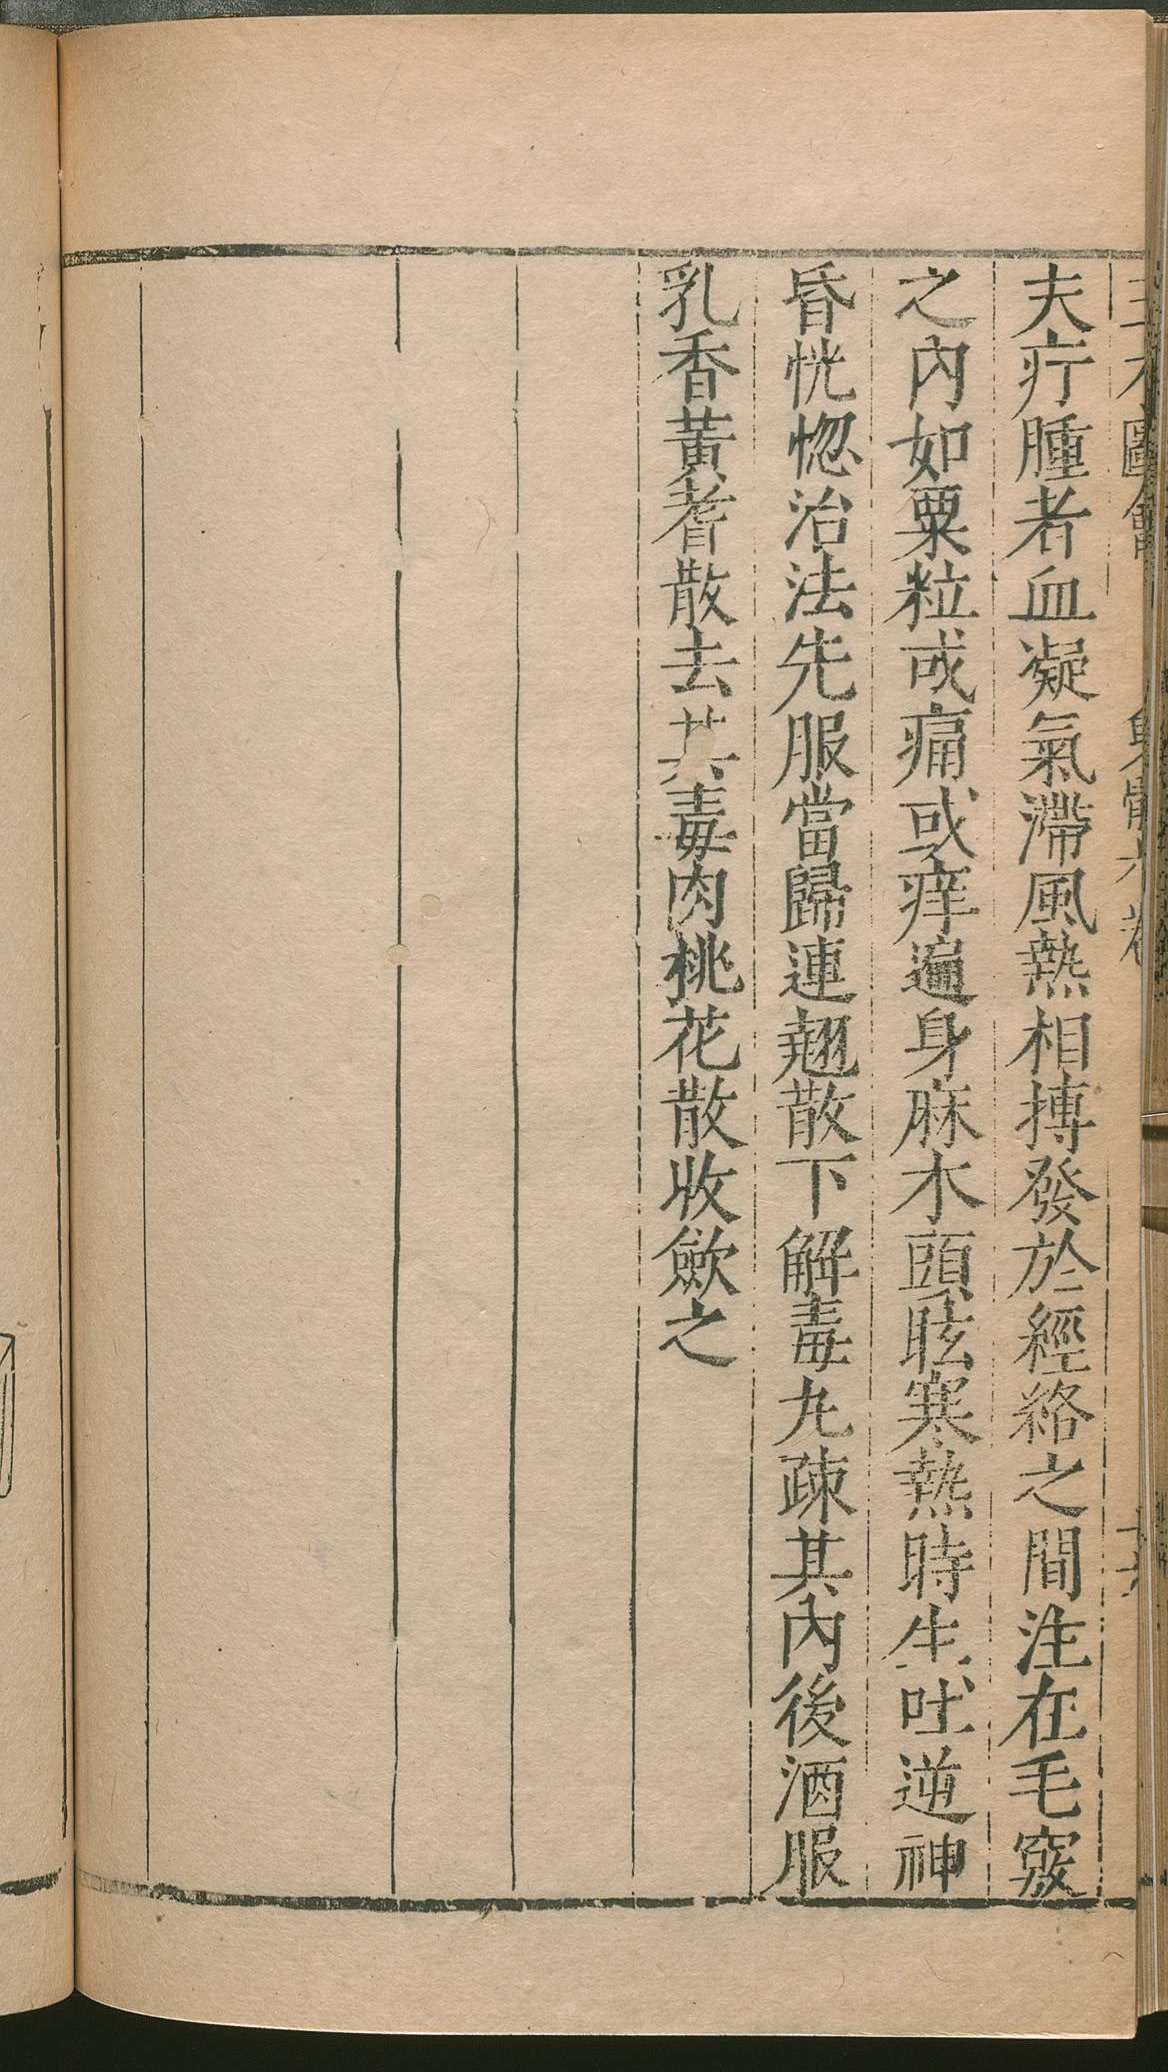 三才圖會 身體六卷 十六
夫疔腫者血凝氣滯風熱相搏發於經絡之間注在毛竅
之內如粟粒或痛或痒遍身麻木頭眩寒熱時生吐逆神
昏恍惚治法先服當歸連翹散下解毒丸疎其內後酒服
乳香黃耆散去其毒肉桃花散收歛之